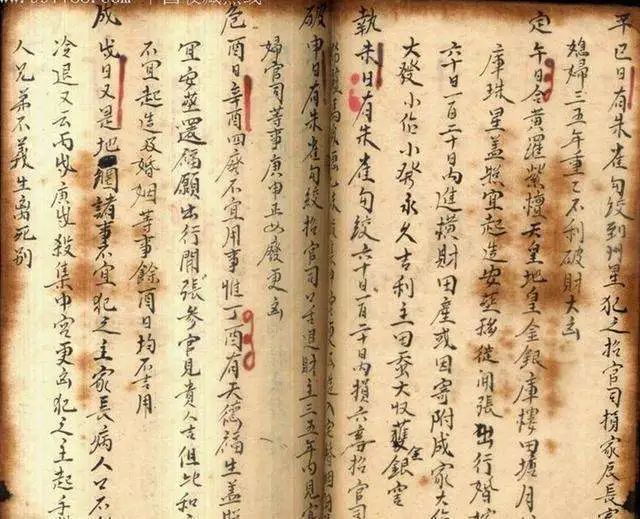 平巳日有朱雀勾絞到州星犯之招官司損家長
媳婦三五年重〻不利破財大凶
定午日合黃羅紫檀天皇地皇金銀庫樓田塘月
庫珠星盖照宜起造安塟移徙開張出行婚
六十日一百二十日內進橫財田產或因寄附成家大
大發小作小發永久吉利主田蚕大收獲金銀
執未日有朱雀勾絞六十日一百二十日內損六畜招官
破申日有朱雀勾絞招官司口舌退財主三五年內見
婦官司等事庚申正四廢更凶
危酉日辛酉四廢不宜用事惟丁酉有天德福生盖照
宜安塟還福願出行開張參官見貴人吉但
不宜起造及婚姻等事餘酉日均不吉用
成戌日又是地網諸事不宜犯之主家長病人口不
冷退又云丙戌庚戌殺集中宮更凶犯之主起
人兄弟不義生离死别